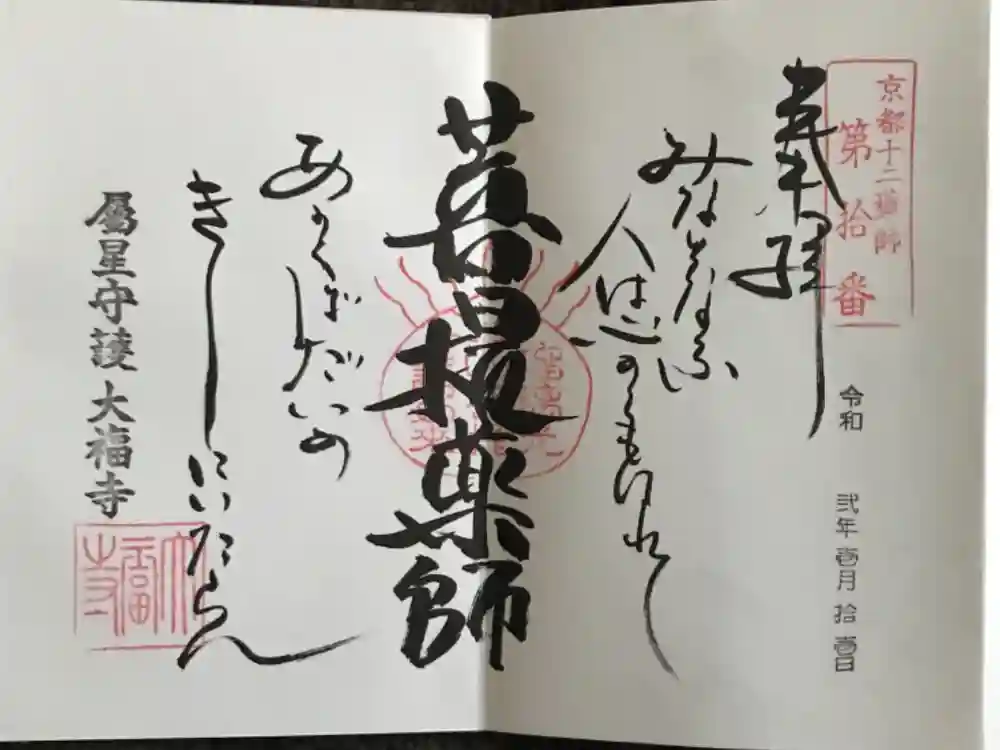 京都十二薬師
第拾番
奉拝
令和 弐年 壱月 拾壱日
みなとなふ
人は
もれ
菩提薬師
あくぼだいの
きしにいたらん
屬星守護 大福寺
大福寺